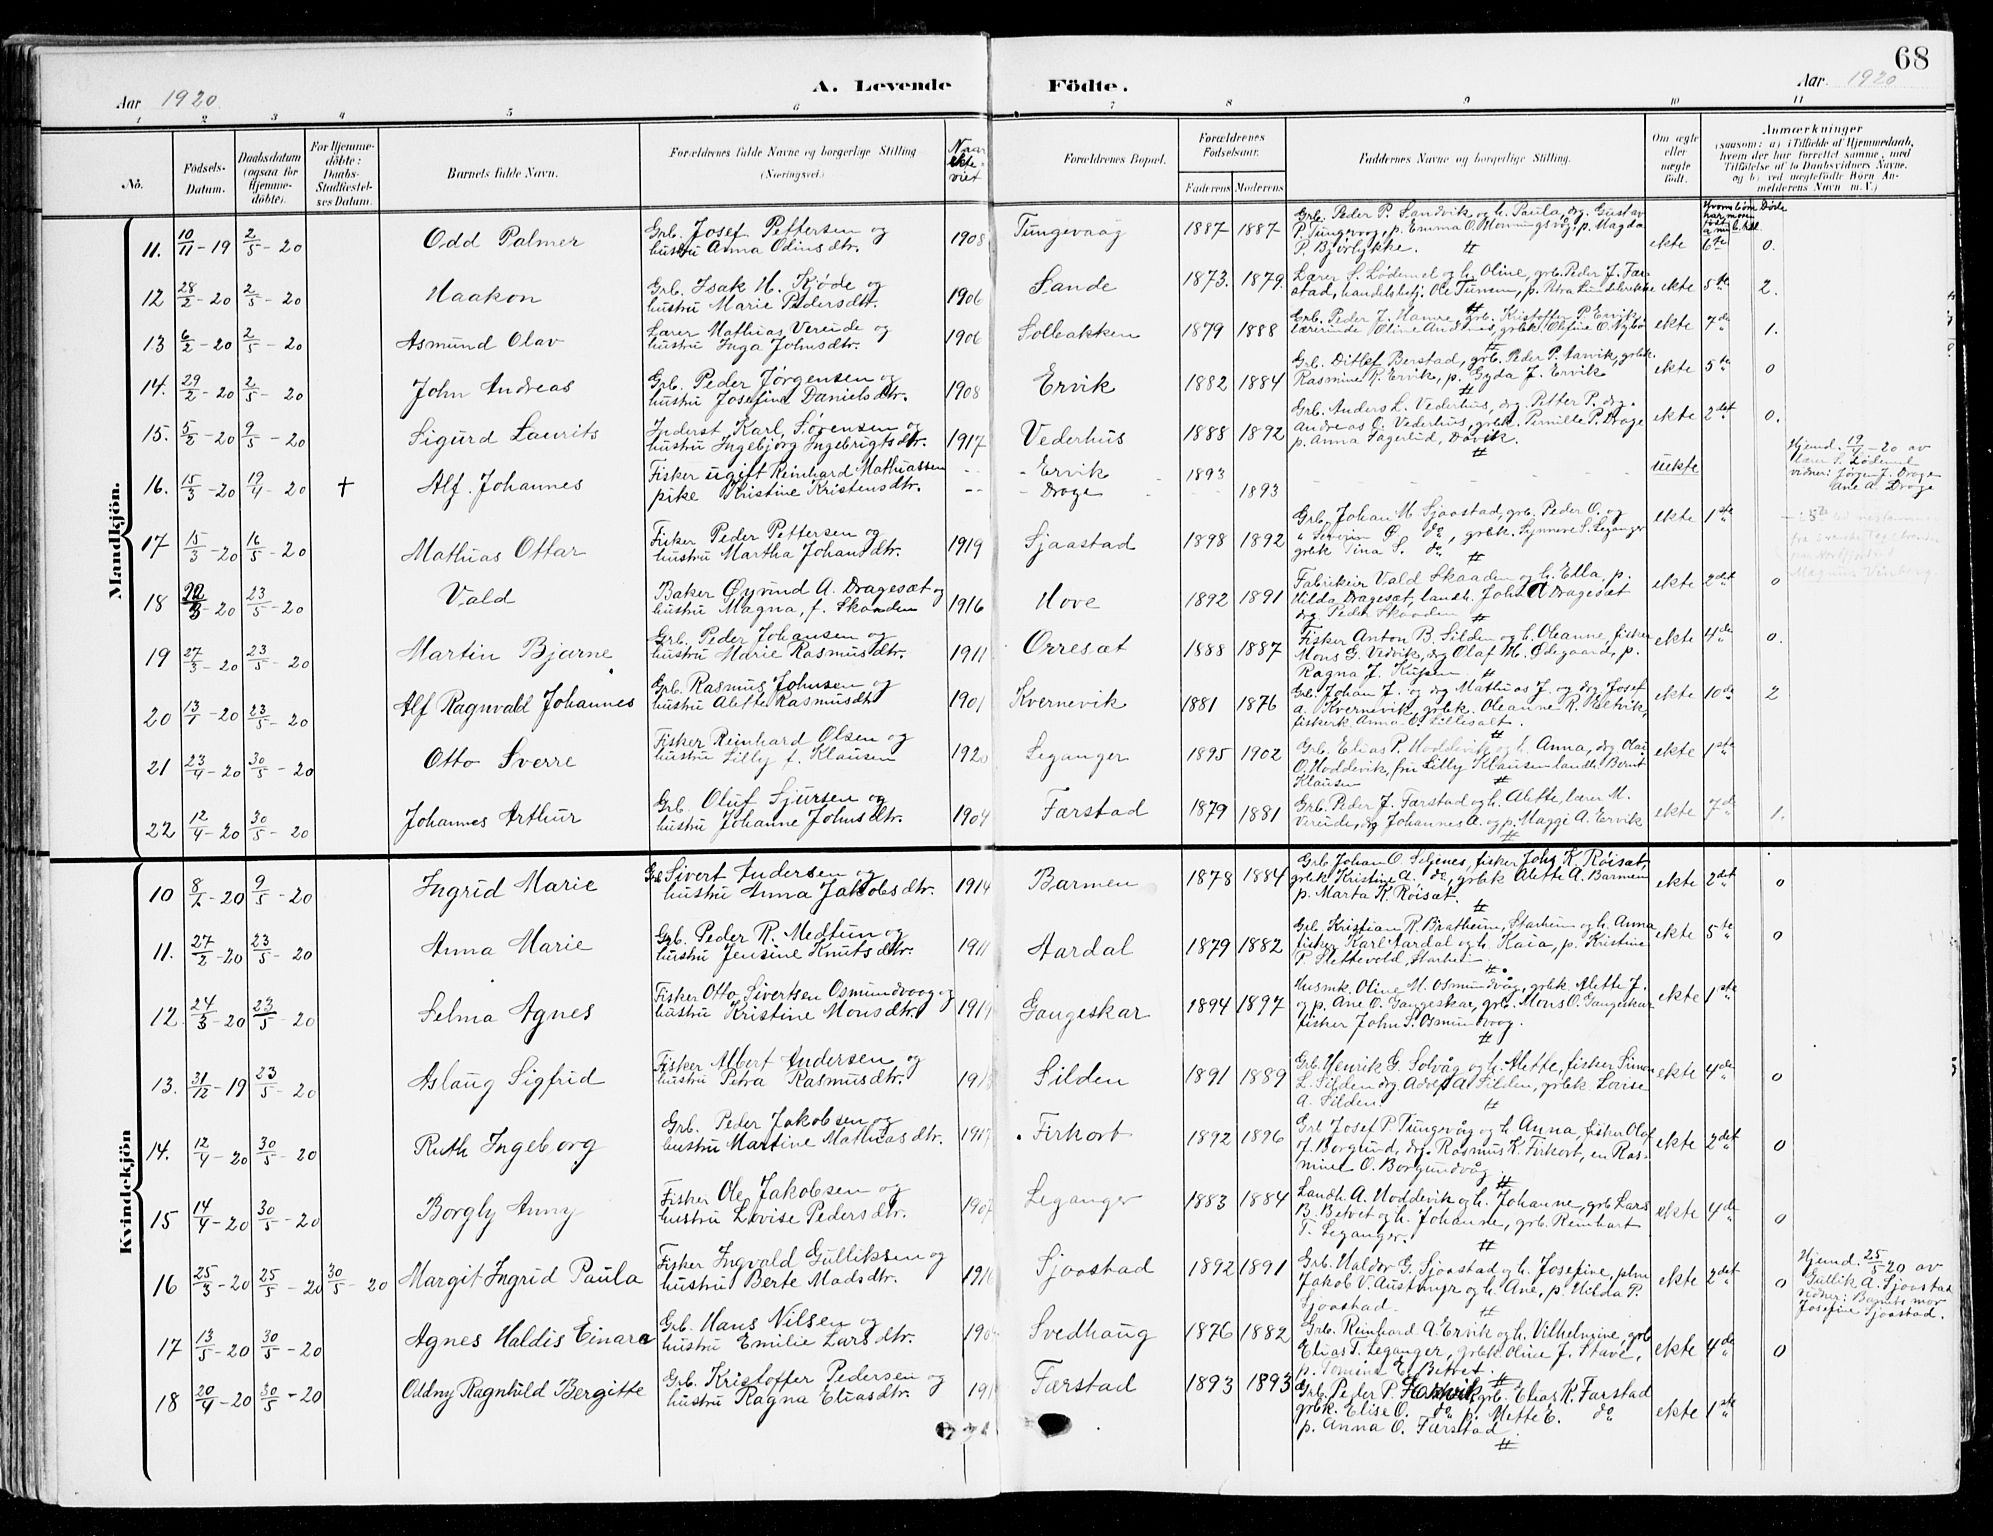 68
Aar 1920
A. Levende
Födte.
Aar 1920
1 2 3 4 5 6 7 8 9 10 11
No.
Födsels-Datum.
Daabsdatum (ogsaa for Hjemmedöbte).
For Hjemmedöbte: Daabs-Stadfæstelses Datum.
Barnets fulde Navn.
Forældrenes fulde Navne og borgerlige Stilling
(Næringsvei.)
Naar ekteviet
Forældrenes Bopæl.
Forældrenes Födselsaar.
Faderens Moderens
Faddernes Navne og borgerlige Stilling.
Om ægte eller uægte födt.
Anmærkninger
(saasom: a) i Tilfælde af Hjemmedaab, hvem der har forrettet samme, med Tilföielse af to Daabsvidners Navne, og b) ved uægtefödte Börn Anmelderens Navn m. V.)
Mandkjön.
11. 10/11-19 2/5-20 Odd Palmer
Grb. Josef Pettersen og
hustru Anna Odinsdtr. 1908 Tungevaag 1887 1887
Grb. Peder P. Sandvik og h. Paula, drg. Gustav
P. Tungevaag, p. Emma O. Honningsvåg, p. Magda
P. Bjørlykke. ekte 6te 0.
12 28/2-20 2/5-20 Haakon
Grb. Isak H. Kjøde og
hustru Marie Pedersdtr. 1906 Sande 1873. 1879.
Lærer S. Lødemel og h. Oline, grb. Peder J. Færstad, handelsbetj. Ole Tunem, p. Petra ekte 5te 2.
13 6/2-20 2/5-20 Asmund Olav
Lærer Mathias Vereide og
hustru Inga Johnsdtr. 1906 Solbakken 1879 1888
Grb. Peder J. Hamre, grb. Kristoffer P. Ervik,
lærerinde Oline ekte 7de 1.
14. 29/2-20 2/5-20 John Andreas
Grb. Peder Jørgensen og
hustru Josefine Danielsdtr. 1908 Ervik 1882 1884
Grb. Ditlef Berstad, grb. Peder P. Aarvik, grbk.
Rasmine R. Ervik, p. Gyda J. Ervik ekte 5te 0
15. 5/2-20 9/5-20 Sigurd Laurits
Inderst Karl Sørensen og
hustru Ingebjørg Ingebrigtsdtr. 1917 Vederhus 1888 1892
Grb. Anders L. Vederhus, drg. Petter P. drg.
Andreas O. Vederhus, grbk. Pernille P. Drage
p. Anna Fagerlid, Davik. ekte 2det 0.
16. 15/3-20 19/4-20 + Alf Johannes
Fisker ugift Reinhard Mathiassen -- Ervik 1893
pike Kristine Kristensdtr. -- Drage 1893 uekte
Hjemd. 19/4-20 av
lærer S. Lødemel
vidner: Jørgen J. Drage
Ane A. Drage
17 15/3-20 16/5-20 Mathias Ottar
Fisker Peder Pettersen og
hustru Martha Johansdtr. 1919 Sjaastad 1898 1892
Grb. Johan M. Sjaastad, grb. Peder O. og
" Severin O. do, grbk. Synneve S. Leganger
grbk Tina S. do ekte 1ste
18 22/3-20 23/5-20 Vald
Baker Øyvind A. Dragesæt og
hustru Magna, f. Skaaden 1916 Hove 1892 1891
Fabrikeier Vald Skaaden og h. Ella, p.
Hilda Dragesæt, landh. John A Dragesæt
drg. Peder Skaaden ekte 2det 0
19 27/3-20 23/5-20 Martin Bjarne
Grb. Peder Johansen og
hustru Marie Rasmusdtr. 1911 Orresæt 1888 1887
Fisker Anton B. Silden og h. Oleanne, fisker
Mons G. Vedvik, drg Olaf M. Ødegaard, p.
Ragna J. ekte 4de 0.
20 13/1-20 23/5-20 Alf Ragnvald Johannes
Grb. Rasmus Johnsen og
hustru Alette Rasmusdtr 1901 Kvernevik 1881 1876
Grb. Johan J. og drg Mathias J. og drg. Josef
A. Kvernevik, grbk. Oleanne R.
fiskerk Anna ekte 10de 2
21 23/4-20 30/5-20 Otto Sverre
Fisker Reinhard Olsen og
hustru Lilly f. Klausen 1920 Leganger 1895 1902
Grb. Elias P. Hoddevik og h. Anna, drg Olai
O. Hoddevik, fru Lilly Klausen landh. Bernt
Klausen ekte 1ste
22 12/4-20 30/5-20 Johannes Arthur
Grb. Oluf Sjursen og
hustru Johanne Johnsdtr. 1904 Færstad 1879 1881
Grb. Peder J. Færstad og h. Alette, lærer M.
Vereide, drg Johannes A. og p. Maggi A. Ervik ekte 7de 1.
Kvindekjön
10 8/2-20 9/5-20 Ingrid Marie
Grb Sivert Andersen og
hustru Anna Jakobsdtr. 1914 Barmen 1878 1884
Grb Johan O. Seljenes, fisker Johs K. Røisæt,
grbk Kristine A. do, grbk Alette A. Barmen
p. Marta K. Røisæt. ekte 2det 0
11. 27/2-20 23/5-20 Anna Marie
Grb. Peder R. Medtun og
hustru Jensine Knutsdtr. 1911 Aardal 1879 1882
Grb Kristian R. Bratheim, Starheim og h. Anna
fisker Karl Aardal og h. Kaia, p. Kristine
P. Slettevold, ekte 5te 0
12. 24/3-20 23/5-20 Selma Agnes
Fisker Otto Sivertsen Osmundvaag og
hustru Kristine Monsdtr. 1919 Gangeskar 1894 1897
Husmk. Oline M. Osmundvåg, grbk. Alette J.
og p. Ane O. Gangeskar, grb. Mons O. Gangeskar
fisker John S. Osmundvaag. ekte 1ste
13. 31/12-19 23/5-20 Aslaug Sigfrid
Fisker Albert Andersen og
hustru Petra Rasmusdtr. Silden 1891 1889
Grb. Henrik G. Solvåg og h. Alette, fisker Simon
L. Silden drg Adolf A. Silden, grbk Lovise
A. Silden. ekte 4de 0
14. 12/4-20 30/5-20 Ruth Ingeborg
Grb. Peder Jakobsen og
hustru Martine Mathiasdtr. 1917 Firkort 1892 1896
Grb Josef P Tungevåg og h. Anna, fisker Olof
J. Borgund, drg. Rasmus K. Firkort, en Rasmine O. Borgundvåg ekte 2det 0
15 14/4-20 30/5-20 Borgly Anny
Fisker Ole Jakobsen og
hustru Lovise Pedersdtr. 1907 Leganger 1883 1884
Landh. A. Hoddevik og h. Johanne, grb Lars
B. Betvet og h. Johanne, grb. Reinhart
T. Leganger. ekte 4de 0
16 25/3-20 25/5-20 30/5-20 Margit Ingrid Paula
Fisker Ingvald Gulliksen og
hustru Berte Madsdtr. 1916 Sjaastad 1892 1891
Grb. Haldor G. Sjaastad og h. Josefine, plm
Jakob V. Austmyr og h. Ane, p. Hilda P.
Sjaastad. ekte 2det 0
Hjemd. 25/5-20 av
Gullik A. Sjaastad
vidner: Barnets mor
Josefine Sjaastad.
17 13/5-20 30/5-20 Agnes Haldis Einara
Grb. Hans Nilsen og
hustru Emilie Larsdtr. Svedhaug 1876 1882
Grb. Reinhard A. Ervik og h. Vilhelmine, grb
Elias T. Leganger, grbk. Oline J. Stave,
p. Tomine E. Betvet. ekte 4de 0
18 20/4-20 30/5-20 Oddny Ragnhild Bergitte
Grb. Kristoffer Pedersen og
hustru Ragna Eliasdtr. Færstad 1893 1893
Grb. Peder P. grb. Elias K. Færstad
grbk. Elise O. do p. Mette E. do
p. Anna O. Færstad. ekte 1ste